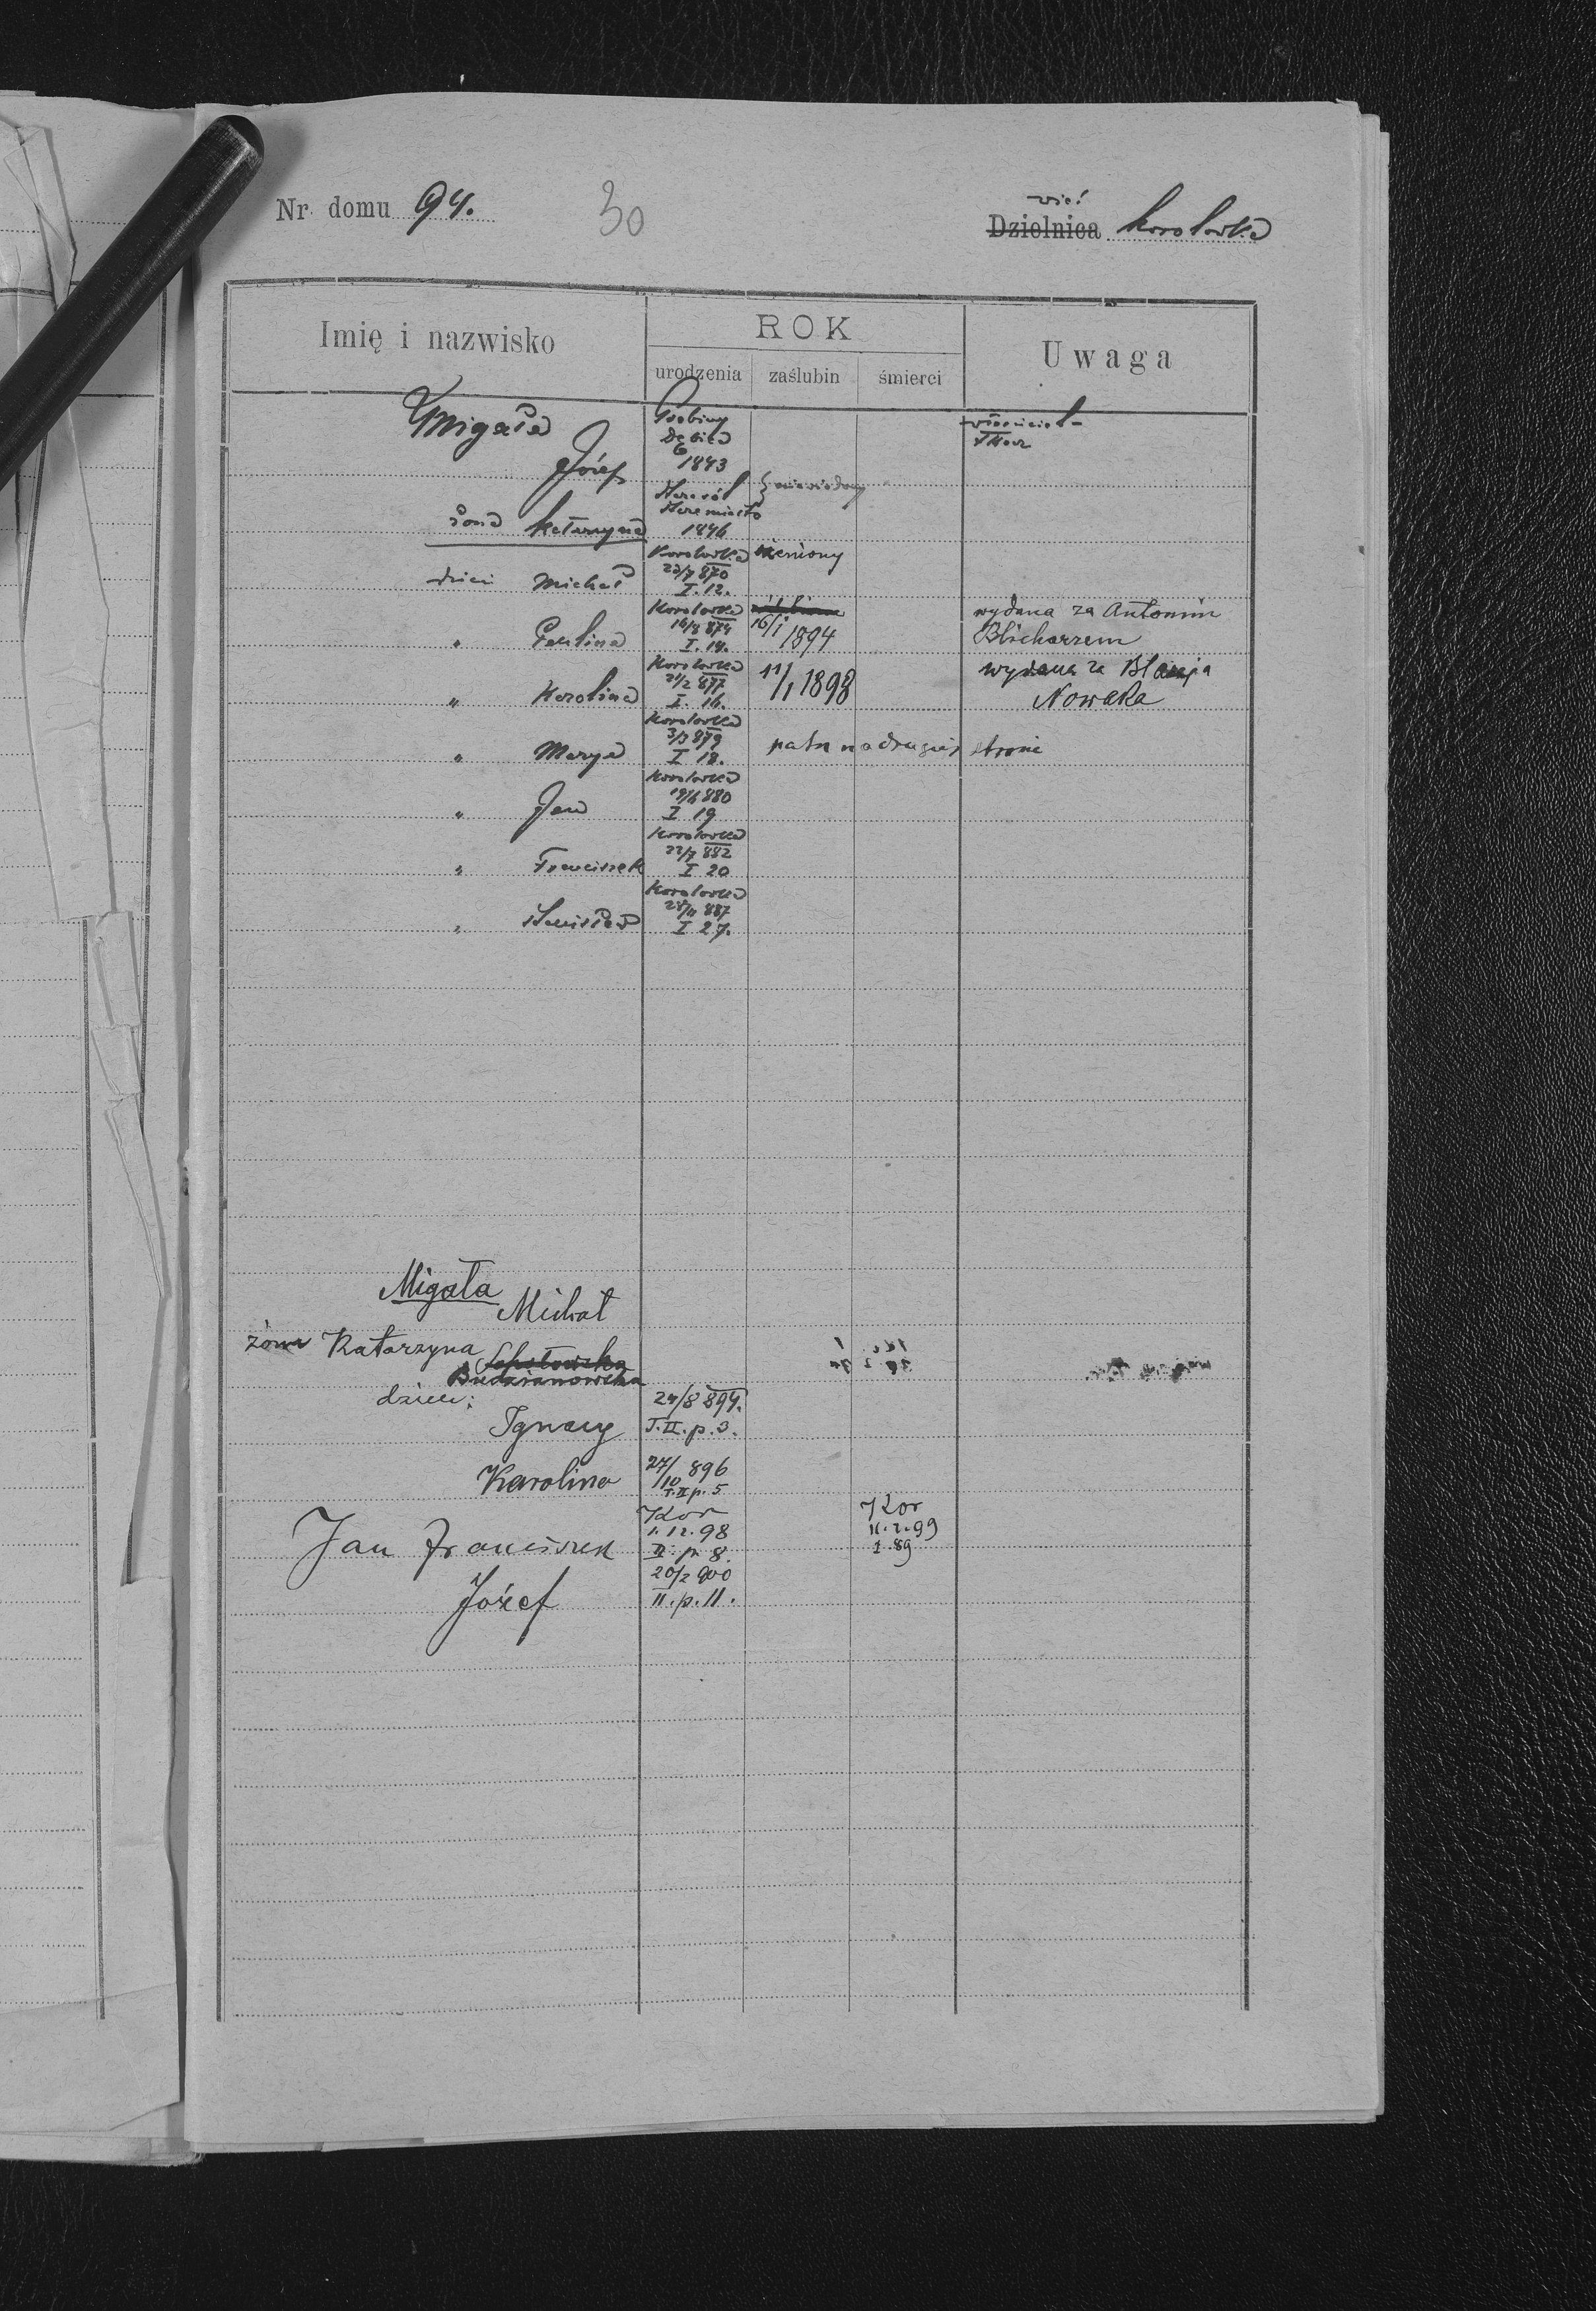 Nr domu 94.
30
wieś
Dzielnica Korolowka
Imię i nazwisko
ROK
urodzenia zaślubin śmierci
Uwaga
Migała
Józef
Dębica
1843
żona Katarzyna
Staremiasto
1846
dzieci Michał
Korolowka
22/7 870
I. 12.
żeniony
" Paulina
Korolowka
16/8 874
I. 14.
16/I 1894
wydana za Antonim
Blicharzem
" Karolina
Korolowka
21/2 877
I. 16.
11/1 1898
wydana za Błażeja
Nowaka
" Marya
Korolowka
3/3 879
I 18.
patrz na drugiej stronie
" Jan
Korolowka
19/6 880
I 19
" Franciszek
Korolowka
22/7 882
I 20
" Stanisław
Korolowka
887
I 27.
Migała
Michał
żona Katarzyna
Budzianowska
dzieci:
Ignacy
24/8 894.
T. II. p. 3.
Karolina
27/10 896
T. II p. 5
Jan Franciszek
Kor
1. 12. 98
II. p 8.
Kor
11. 2. 99
I 89
Józef
20/2 900
II. p. 11.